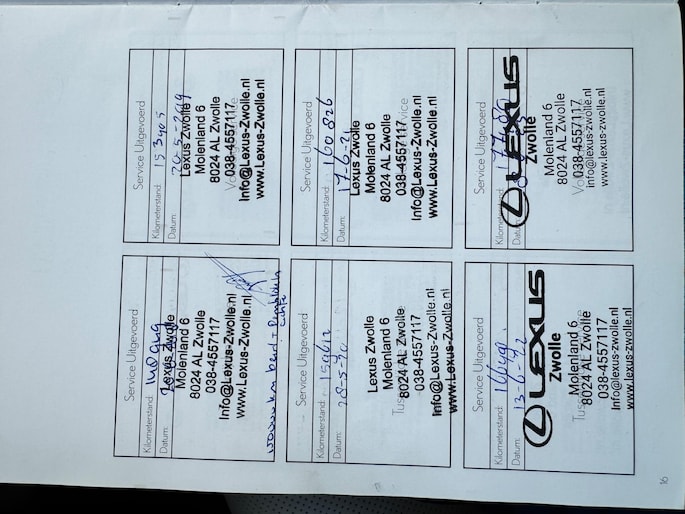 Service Uitgevoerd
Kilometerstand:
Datum:
Lexus Zwolle
Molenland 6
8024 AL Zwolle
038-4557117
Info@Lexus-Zwolle.nl
www.Lexus-Zwolle.nl
Service Uitgevoerd
Kilometerstand: 153405
Datum: 20-5-2019
Lexus Zwolle
Molenland 6
8024 AL Zwolle
038-4557117
Info@Lexus-Zwolle.nl
www.Lexus-Zwolle.nl
Service Uitgevoerd
Kilometerstand: 159612
Datum: 28-5-20
Lexus Zwolle
Molenland 6
8024 AL Zwolle
038-4557117
Info@Lexus-Zwolle.nl
www.Lexus-Zwolle.nl
Service Uitgevoerd
Kilometerstand: 160826
Datum: 17-6-21
Lexus Zwolle
Molenland 6
8024 AL Zwolle
038-4557117
Info@Lexus-Zwolle.nl
www.Lexus-Zwolle.nl
Service Uitgevoerd
Kilometerstand:
Datum: 13-6-22
LEXUS
Zwolle
Molenland 6
8024 AL Zwolle
038-4557117
info@lexus-zwolle.nl
www.lexus-zwolle.nl
Service Uitgevoerd
Kilometerstand:
LEXUS
Zwolle
Molenland 6
8024 AL Zwolle
038-4557117
info@lexus-zwolle.nl
www.lexus-zwolle.nl
16